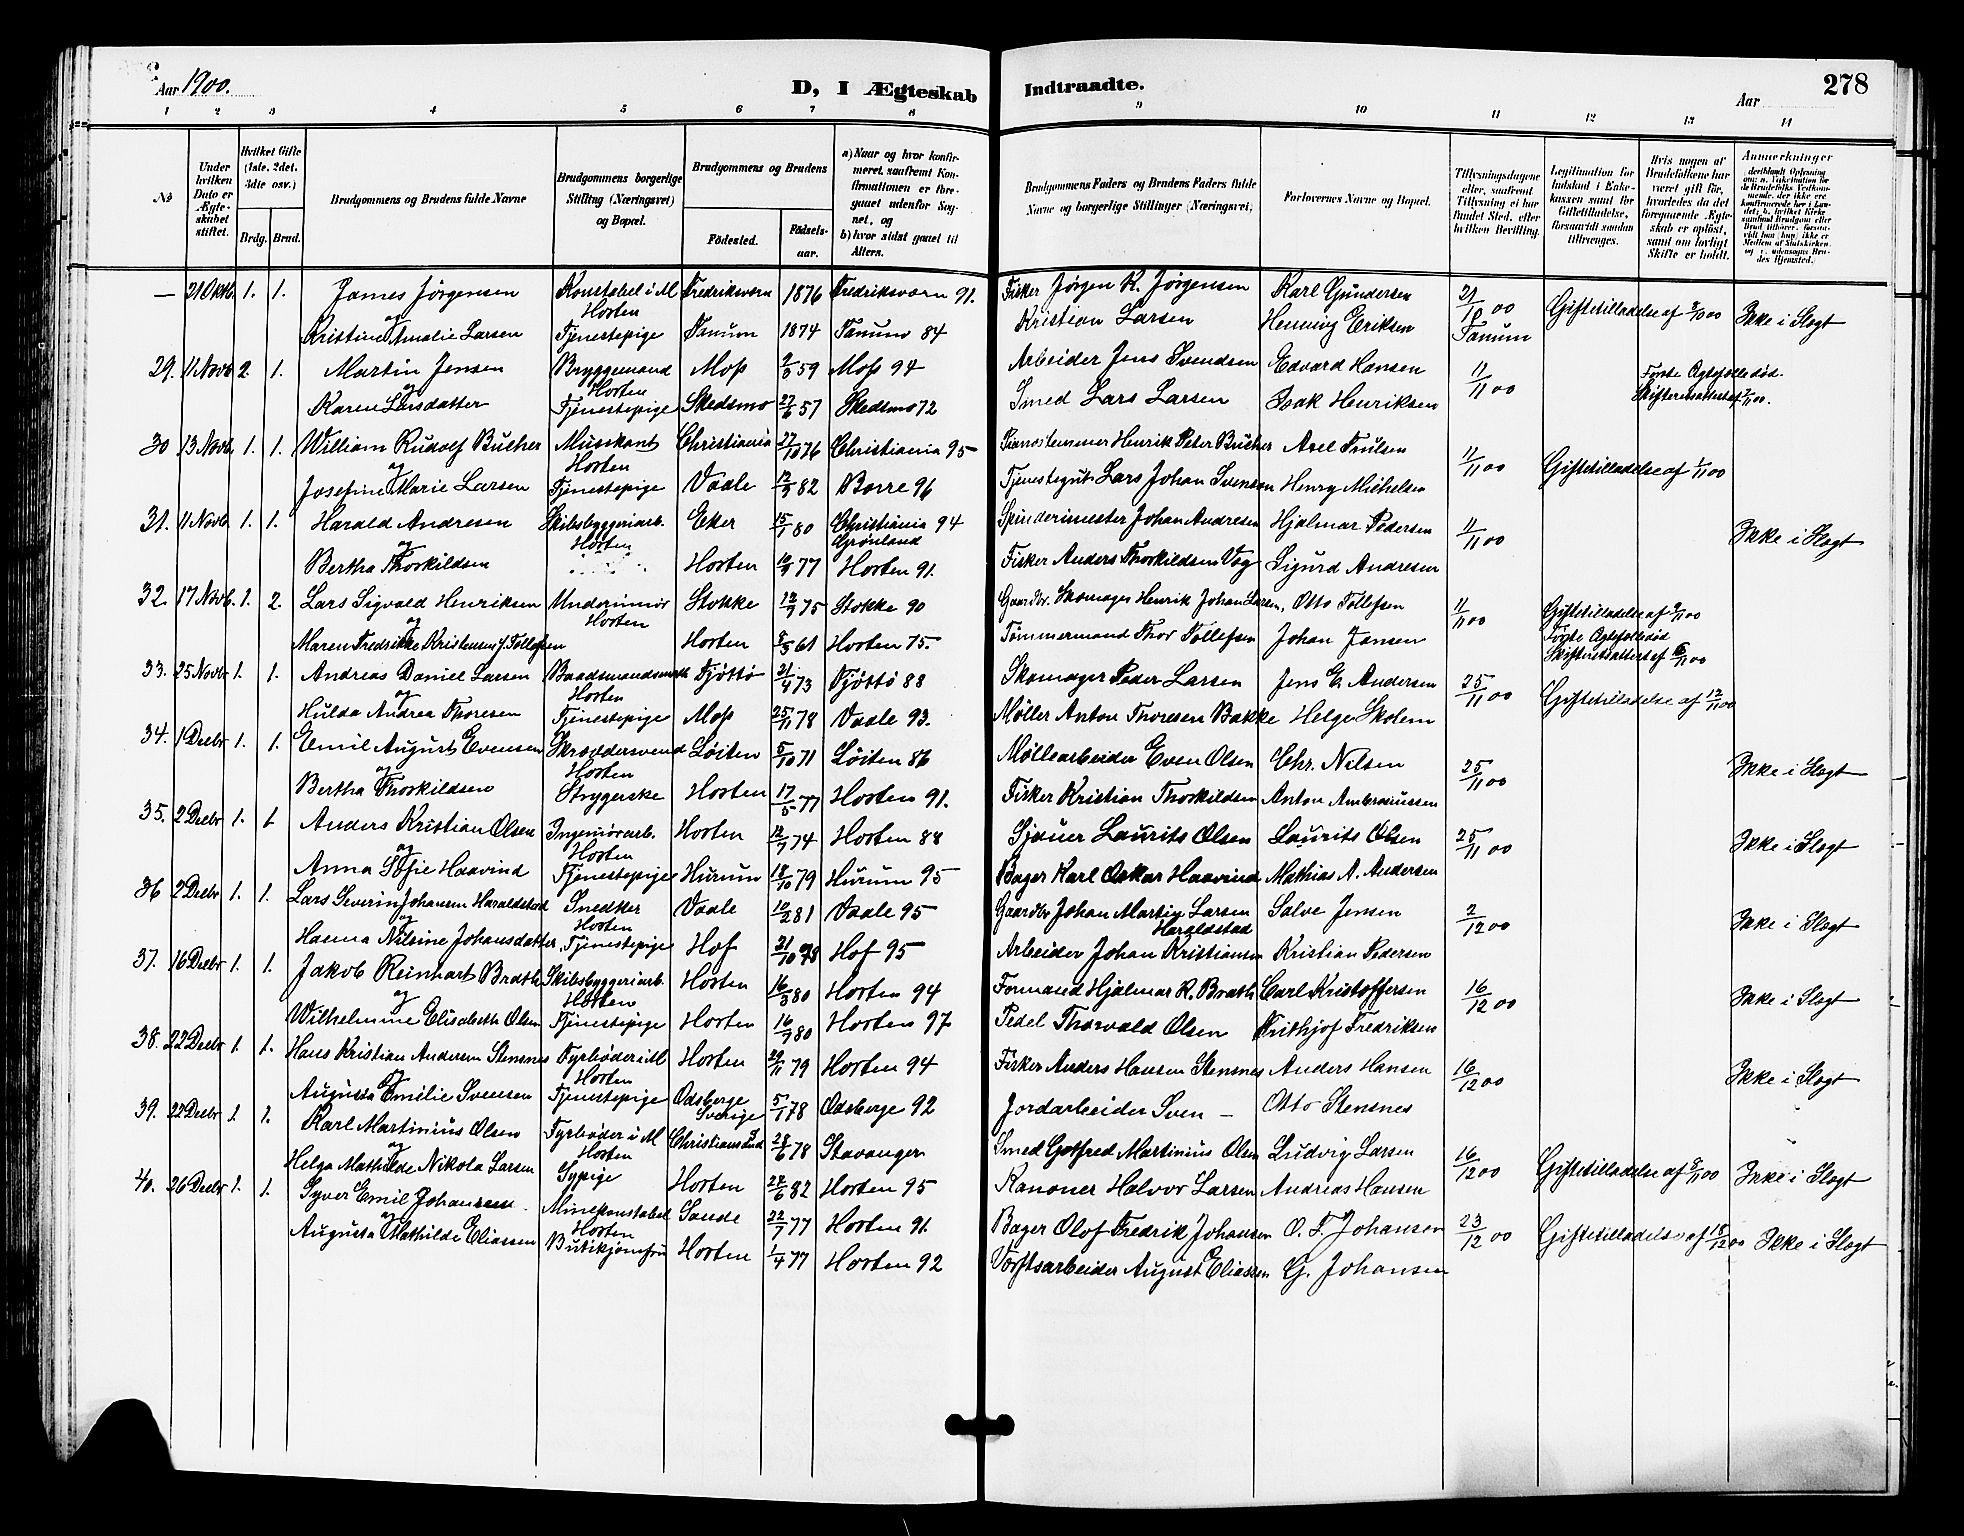 Aar 1900.
D, I Ægteskab
Indtraadte.
Aar
278
1 2 3 4 5 6 7 8 9 10 11 12 13 14
No
Under hvilken Dato er Ægteskabet stiftet.
Hvilket Gifte (1ste, 2det, 3die osv.)
Brdg. Brud.
Brudgommens og Brudens fulde Navne
Brudgommens borgerlige Stilling (Næringsvei) og Bopæl.
Brudgommens og Brudens
Födested.
Födselsaar.
a) Naar og hvor konfirmeret, saafremt Konfirmationen er foregaaet udenfor Sognet, og b) hvor sidst gaaet til Alters.
Brudgommens Faders og Brudens Faders fulde Navne og borgerlige Stillinger (Næringsvei)
Forlovernes Navne og Bopæl.
Tillysningsdagene eller, saafremt Tillysning ei har fundet Sted, efter hvilken Bevilling.
Legitimation for Indskud i Enkekassen samt for Giftetilladelse, forsaavidt saadan tiltrænges.
Hvis nogen af Brudefolkene har været gift før, hvorledes da det foregaaende Ægteskab er opløst, samt om lovligt Skifte er holdt.
Anmerkninger
— 21 Oktb. 1. 1. James Jørgensen Konstabel i M Horten Fredriksværn 1876 Fredriksværn 91. Fisker Jørgen K. Jørgensen Karl Gundersen 21/10 00 Tanum Giftetilladelse af 8/10 00 Ikke i Slægt
og Kristine Amalie Larsen Tjenestepige Tanum 1874 Tanum 84 Kristian Larsen Henning Eriksen
29. 11 Novb 2. 1. Martin Jensen Bryggemand Horten Moss 2/8 59 Moss 94 Arbeider Jens Svendsen Edvard Hansen 11/11 00 Første Ægtefælle død. Skifteretsattest af 7/11 00.
og Karen Larsdatter Tjenestepige Skedsmo 27/6 57 Skedsmo 72 Smed Lars Larsen Isak Henriksen
30 13 Novb. 1. 1. William Rudolf Buther Musikant Horten Christiania 27/10 76 Christiania 95 Pianostemmer Henrik Peter Buther Axel Trulsen 11/11 00 Giftetilladelse af 1/11 00
og Josefine Marie Larsen Tjenestepige Vaale 12/3 82 Borre 96 Tjenestegut Lars Johan Svensen Henry Michelsen
31. 11 Novb. 1. 1. Harald Andresen Skibsbyggeriarb. Horten Eker 15/1 80 Christiania 94 Grønland Spinderimester Johan Andresen Hjalmar Pedersen 11/11 00 Ikke i Slægt
og Bertha Thorkildsen Horten 10/9 77 Horten 91. Fisker Anders Thorkildsen Sigurd Andresen
32. 17 Novb. 1. 2. Lars Sigvald Henriksen Minørminør Horten Stokke 12/7 75 Stokke 90 Gaardbr. Skomager Henrik Johan Larsen, Otto Tollefsen 11/11 00 Giftetilladelse af 9/11 00
og Maren Fredrikke Kristensen f. Tollefsen Horten 8/5 61 Horten 75. Tømmermand Thor Tollefsen Johan Jansen Første Ægtefælle død Skifteretsattest af 6/11 00
33. 25 Novbr 1. 1. Andreas Daniel Larsen Baadsmandsmath Horten Tjøttø 21/4 73 Tjøttø 88 Skomager Peder Larsen Jens E. Andersen 25/11 00 Giftetilladelse af 12/11 00
og Hulda Andrea Thoresen Tjenestepige Moss 25/11 78 Vaale 93. Møller Anton Thoresen Bakke Helge Skolem
34. 1 Decbr 1. 1. Emil August Evensen Skræddersvend Horten Løiten 5/10 71 Løiten 86 Møllearbeider Even Olsen Chr. Nilsen 25/11 00 Ikke i Slægt
og Bertha Thorkildsen Strygerske Horten 17/5 77 Horten 91. Fisker Kristian Thorkildsen Anton Ambrosiussen
35. 2 Decbr 1. 1 Anders Kristian Olsen Ingeniørarb. Horten Horten 12/7 74 Horten 88 Sjauer Laurits Olsen Laurits Olsen 25/11 00 Ikke i Slægt
og Anna Sofie Haavind Tjenestepige Hurum 18/10 79 Hurum 95 Bager Karl Oskar Haavind Mathias A. Andersen
36 2 Decbr 1. 1. Lars Severin Johansen Haraldstad Snedker Horten Vaale 10/2 81 Vaale 95 Gaardbr Johan Martin Larsen Haraldstad Salve Jensen 2/12 00 Ikke i Slægt
og Hanna Nilsine Johansdatter Tjenestepige Hof 21/10 78 Hof 95 Arbeider Johan Kristiansen Kristian Pedersen
37. 16 Decbr 1. 1. Jakob Reinhart Brath Skibsbyggeriarb. Horten Horten 16/3 80 Horten 94 Formand Hjalmar R. Brath Carl Kristoffersen 16/12 00 Ikke i Slægt
og Wilhelmine Elisabeth Olsen Tjenestepige Horten 16/7 80 Horten 97 Pedel Thorvald Olsen Frithjof Fredriksen
38. 22 Decbr 1. 1. Hans Kristian Andersen Stensnes Fyrbøder i M Horten Horten 29/11 79 Horten 94 Fisker Anders Hansen Stensnes Anders Hansen 16/12 00 Ikke i Slægt
og Augusta Emilie Svensen Tjenestepige Odsberge Sverige 5/1 78 Odsberge 92 Jordarbeider Sven — Otto Stensnes
39. 22 Decbr 1. 1. Karl Martinius Olsen Fyrbøder i M Horten Christianssund 28/6 78 Stavanger Smed Gotfred Martinius Olsen Ludvig Larsen 16/12 00 Giftetilladelse af 8/11 00 Ikke i Slægt
og Helga Mathilde Nikola Larsen Sypige Horten 27/6 82 Horten 95 Kanoner Halvor Larsen Andreas Hansen
40. 26 Decbr 1. 1. Syver Emil Johansen Minekonstabel Horten Sande 22/7 77 Horten 91. Bager Olof Fredrik Johansen O. F. Johansen 23/12 00 Giftetilladelse af 18/12 00 Ikke i Slægt
og Augusta Mathilde Eliassen Butikjomfru Horten 1/4 77 Horten 92 Værftsarbeider August Eliassen G. Johansen